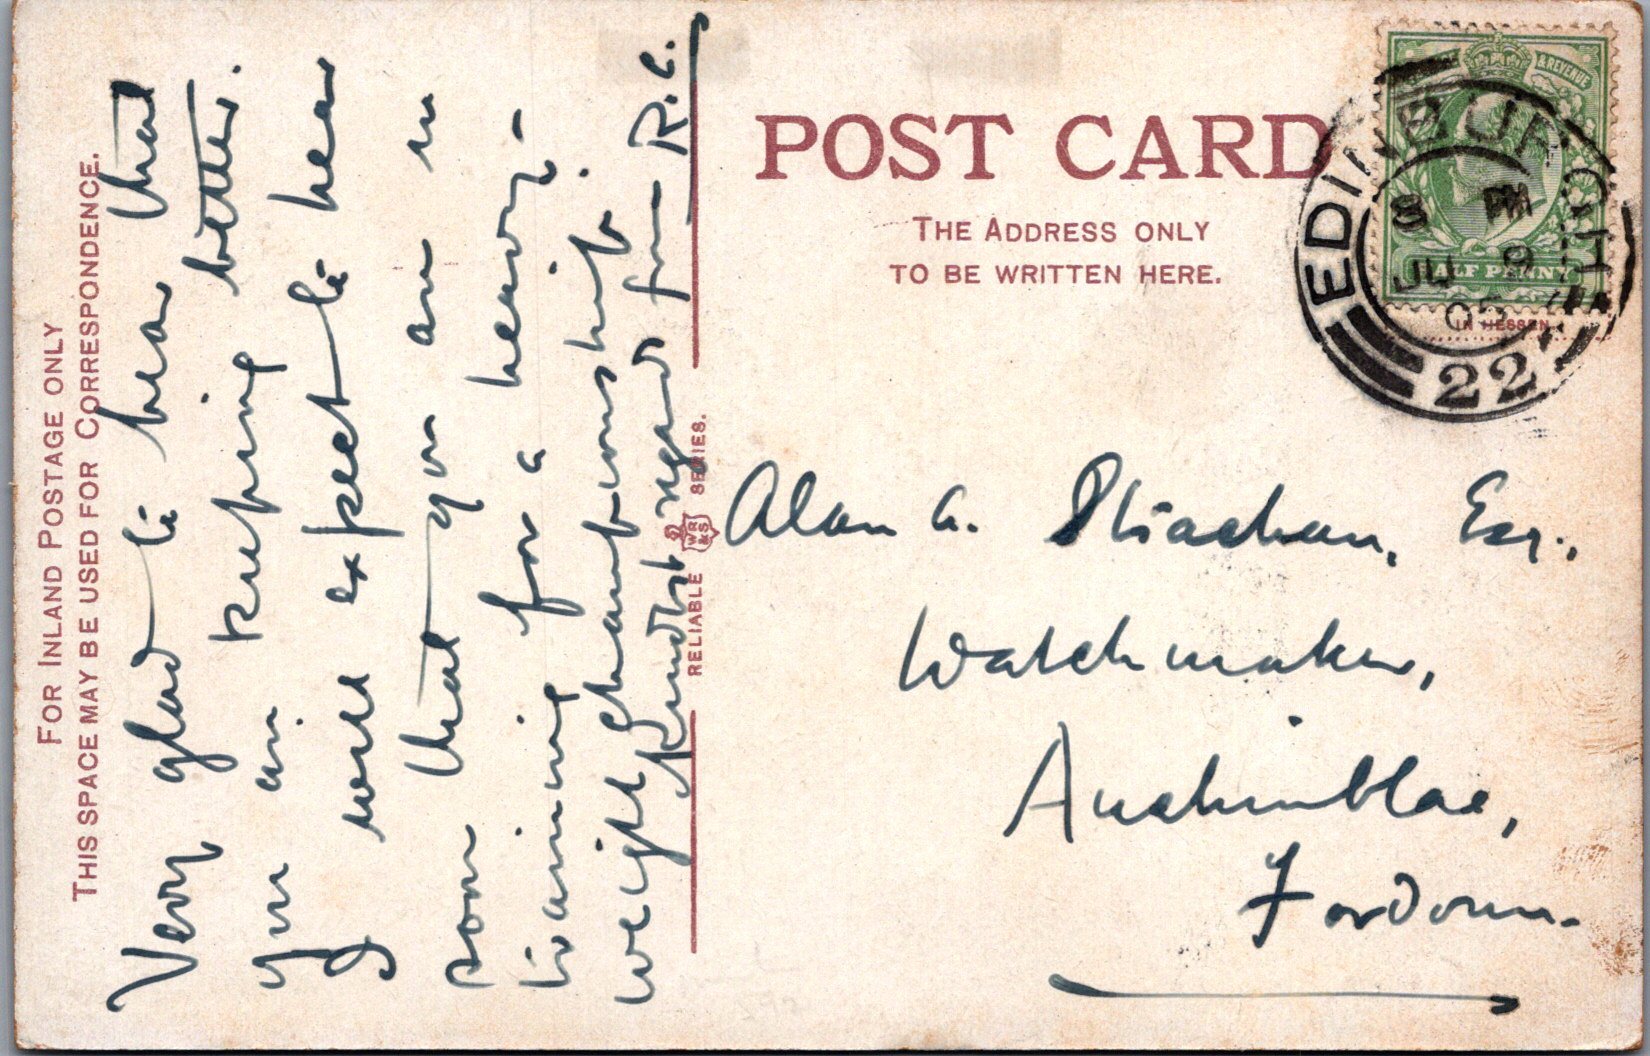 FOR INLAND POSTAGE ONLY
THIS SPACE MAY BE USED FOR CORRESPONDENCE.
Very glad to hear that
you are keeping better.
I will expect to hear
soon that you are in
training for a heavy-
weight championship.
Kindest regards from R.C.
RELIABLE WR&S SERIES.
POST CARD
THE ADDRESS ONLY
TO BE WRITTEN HERE.
& REVENUE
HALF PENNY
IN HESSEN
EDINBURGH
8 PM
JU 9
05
22
Alan A. Strachan, Esq.,
Watchmaker,
Auchinblae,
Fordoun.